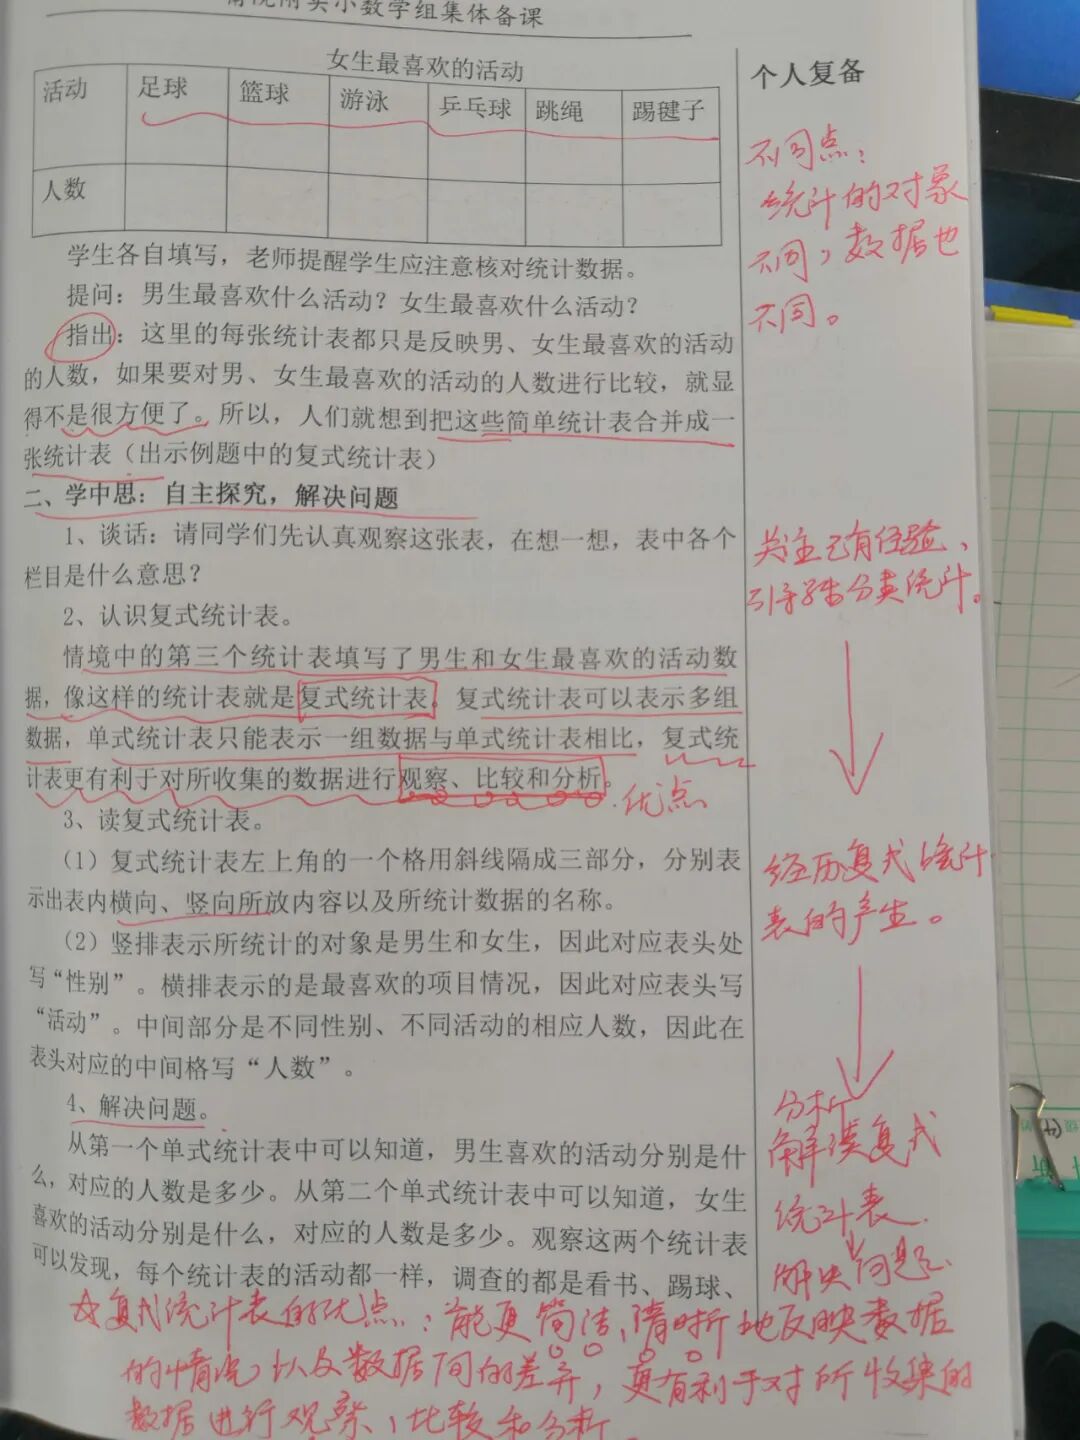 附实小数学组集体备课
女生最喜欢的活动
个人复备
活动 足球 篮球 游泳 乒乓球 跳绳 踢毽子
人数
不同点：
统计的对象
不同，数据也
不同。
学生各自填写，老师提醒学生应注意核对统计数据。
提问：男生最喜欢什么活动？女生最喜欢什么活动？
指出：这里的每张统计表都只是反映男、女生最喜欢的活动
的人数，如果要对男、女生最喜欢的活动的人数进行比较，就显
得不是很方便了。所以，人们就想到把这些简单统计表合并成一
张统计表（出示例题中的复式统计表）
二、学中思：自主探究，解决问题
1、谈话：请同学们先认真观察这张表，在想一想，表中各个
栏目是什么意思？
2、认识复式统计表。
情境中的第三个统计表填写了男生和女生最喜欢的活动数
据，像这样的统计表就是复式统计表。复式统计表可以表示多组
数据，单式统计表只能表示一组数据与单式统计表相比，复式统
计表更有利于对所收集的数据进行观察、比较和分析。
优点
3、读复式统计表。
（1）复式统计表左上角的一个格用斜线隔成三部分，分别表
示出表内横向、竖向所放内容以及所统计数据的名称。
（2）竖排表示所统计的对象是男生和女生，因此对应表头处
写“性别”。横排表示的是最喜欢的项目情况，因此对应表头写
“活动”。中间部分是不同性别、不同活动的相应人数，因此在
表头对应的中间格写“人数”。
4、解决问题。
从第一个单式统计表中可以知道，男生喜欢的活动分别是什
么，对应的人数是多少。从第二个单式统计表中可以知道，女生
喜欢的活动分别是什么，对应的人数是多少。观察这两个统计表
可以发现，每个统计表的活动都一样，调查的都是看书、踢球、
关注已有经验、
引导学生分类统计。
经历复式统计
表的产生。
分析
解读复式
统计表
解决问题
☆复式统计表的优点：能更简洁、清晰地反映数据
的情况，以及数据间的差异，更有利于对所收集的
数据进行观察、比较和分析。